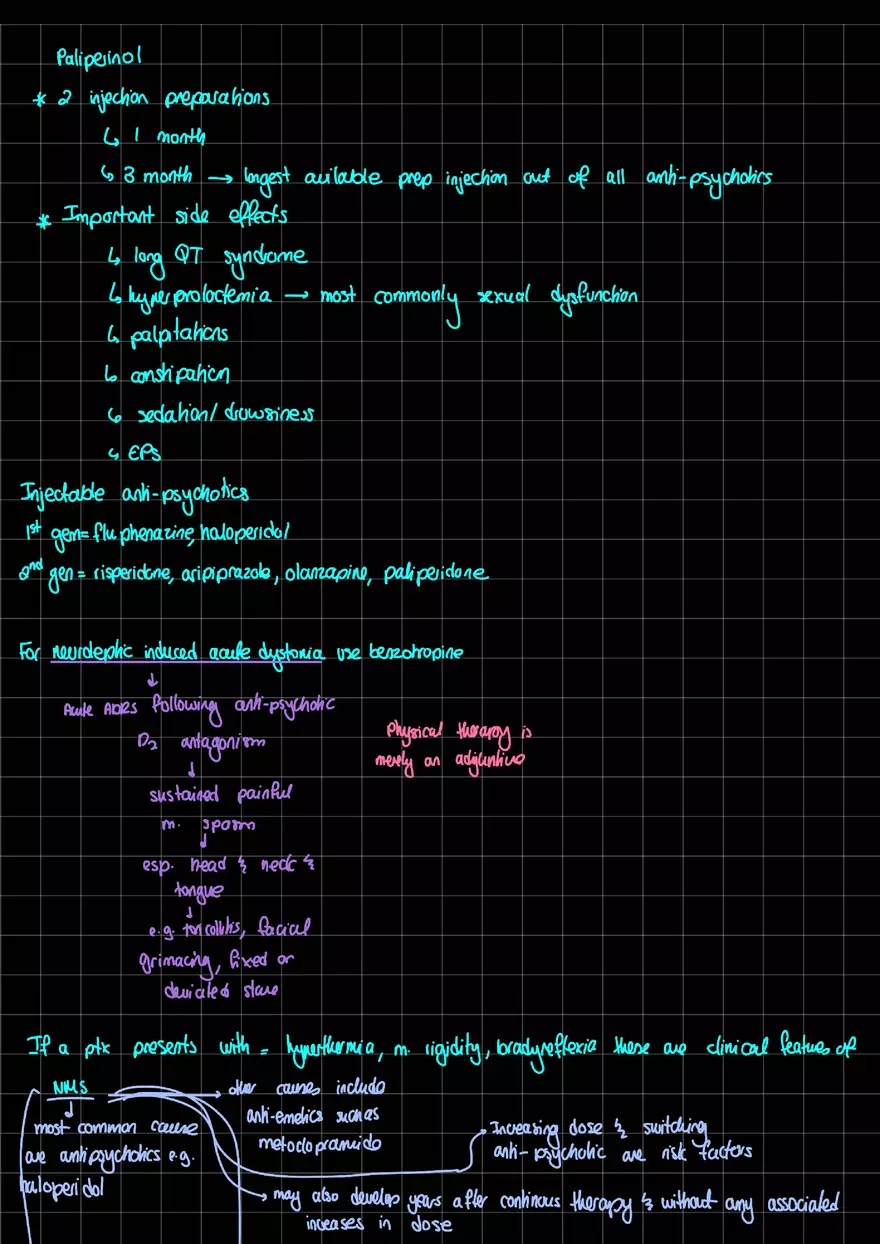 Paliperinol
* 2 injection preparations
↳ 1 month
↳ 3 month → longest available prep injection out of all anti-psychotics
* Important side effects
↳ long QT syndrome
↳ hyperprolactemia → most commonly sexual dysfunction
↳ palpitations
↳ constipation
↳ sedation/drowsiness
↳ EPS
Injectable anti-psychotics
1st gen = fluphenazine, haloperidol
2nd gen = risperidone, aripiprazole, olanzapine, paliperidone
For neuroleptic induced acute dystonia use benzotropine
↓
Acute ADRs following anti-psychotic
D2 antagonism
↓
sustained painful
m. spasm
↓
esp. head & neck &
tongue
↓
e.g. torticollitis, facial
grimacing, fixed or
deviated stare
Physical therapy is
merely an adjunctive
If a ptx presents with = hyperthermia, m. rigidity, bradyreflexia these are clinical features of
NMS
↓
most common cause
are antipsychotics e.g.
haloperidol
→ other causes include
anti-emetics such as
metoclopramide
→ Increasing dose & switching
anti-psychotic are risk factors
→ may also develop years after continous therapy & without any associated
increases in dose